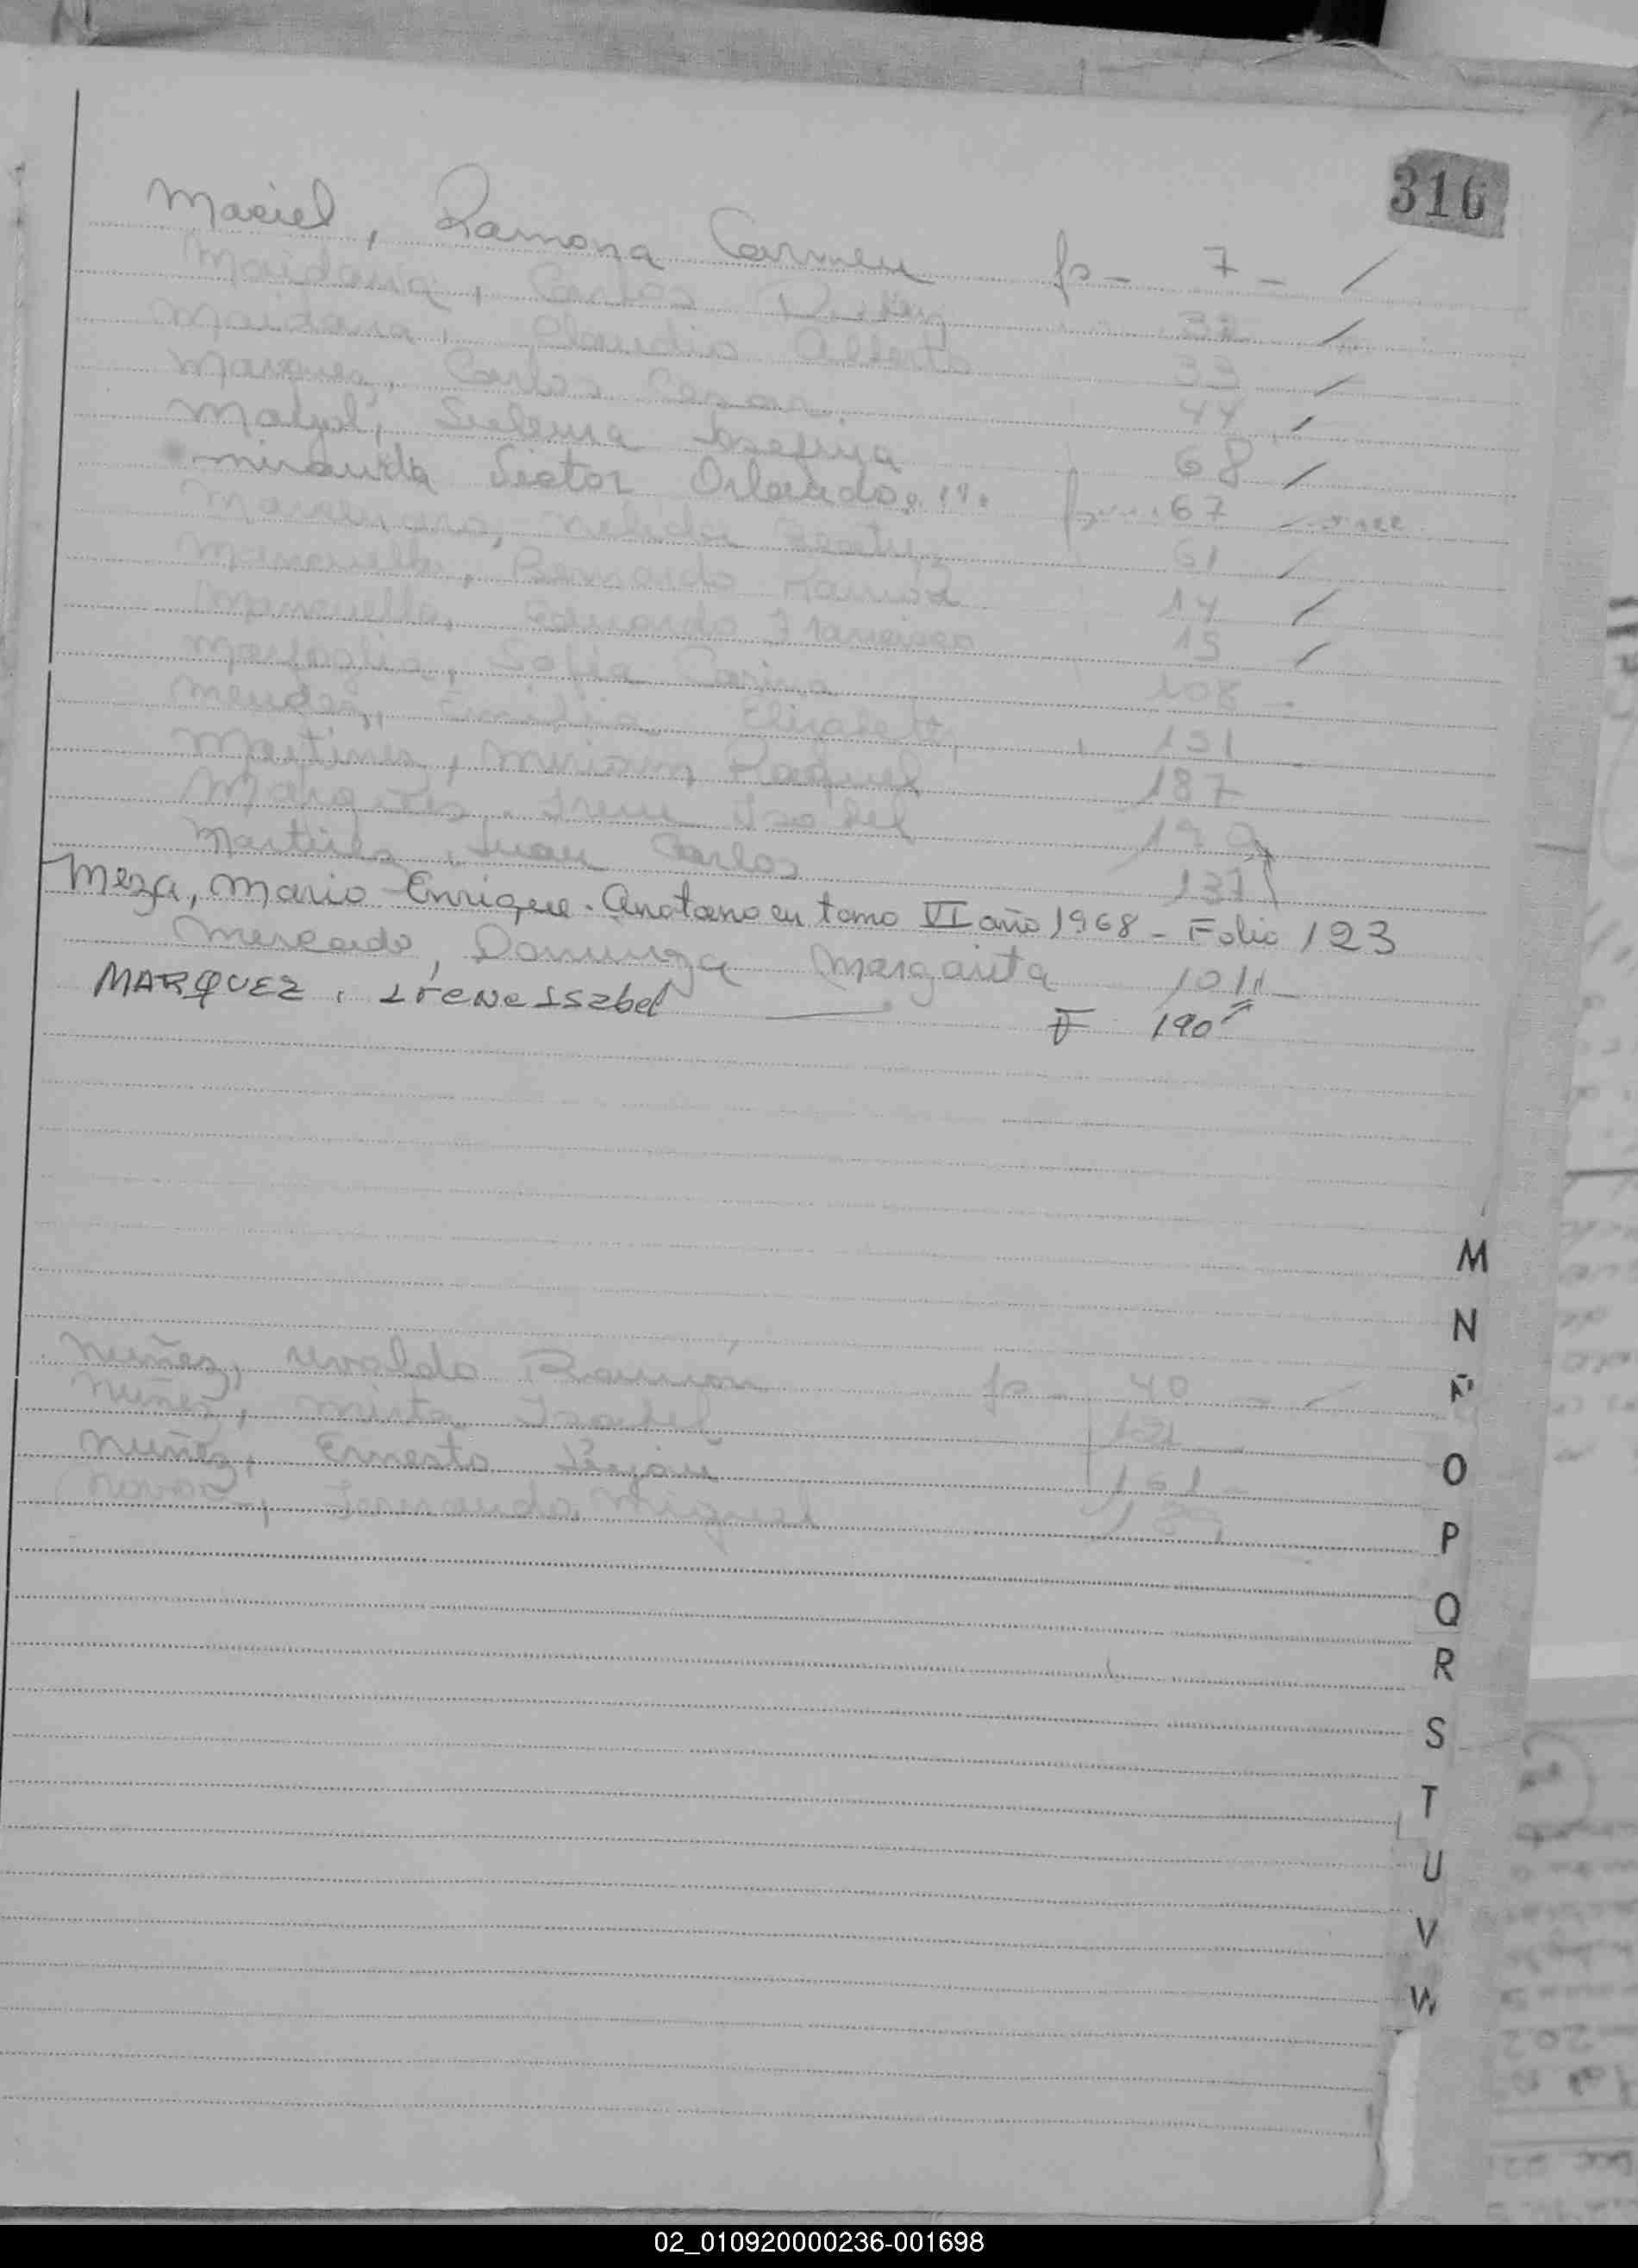 316
Maciel, Ramona Carmen fs - 7 - /
Maidana, Carlos Ruben 32 /
Maidana, Claudio Alberto 33 /
Marquez, Carlos Cesar. 44 /
Mayol, Josefina 68 /
Miranda Victor Orlando 67
Nelida Beatriz 61 /
Mancuello, Bernardo Ramón 14 /
Mancuello, Eduardo Francisco 15 /
Sofia 108 -
Mendez, Elizabeth 131
Martinez, Miriam Raquel 187
Irene Isabel 190
Martinez, Juan Carlos 137
Meza, Mario Enrique. Anotano en tomo VI año 1968 - Folio 123
Mercado, Dominga Margarita 101
MARQUEZ, Irene Isabel F 190
M
N
Nuñez, Ramón fs - 40 - /
Ñ
Nuñez, Mirta Isabel 121
Nuñez, Ernesto 161 -
O
Fernando Miguel
P
Q
R
S
T
U
V
W
02_010920000236-001698